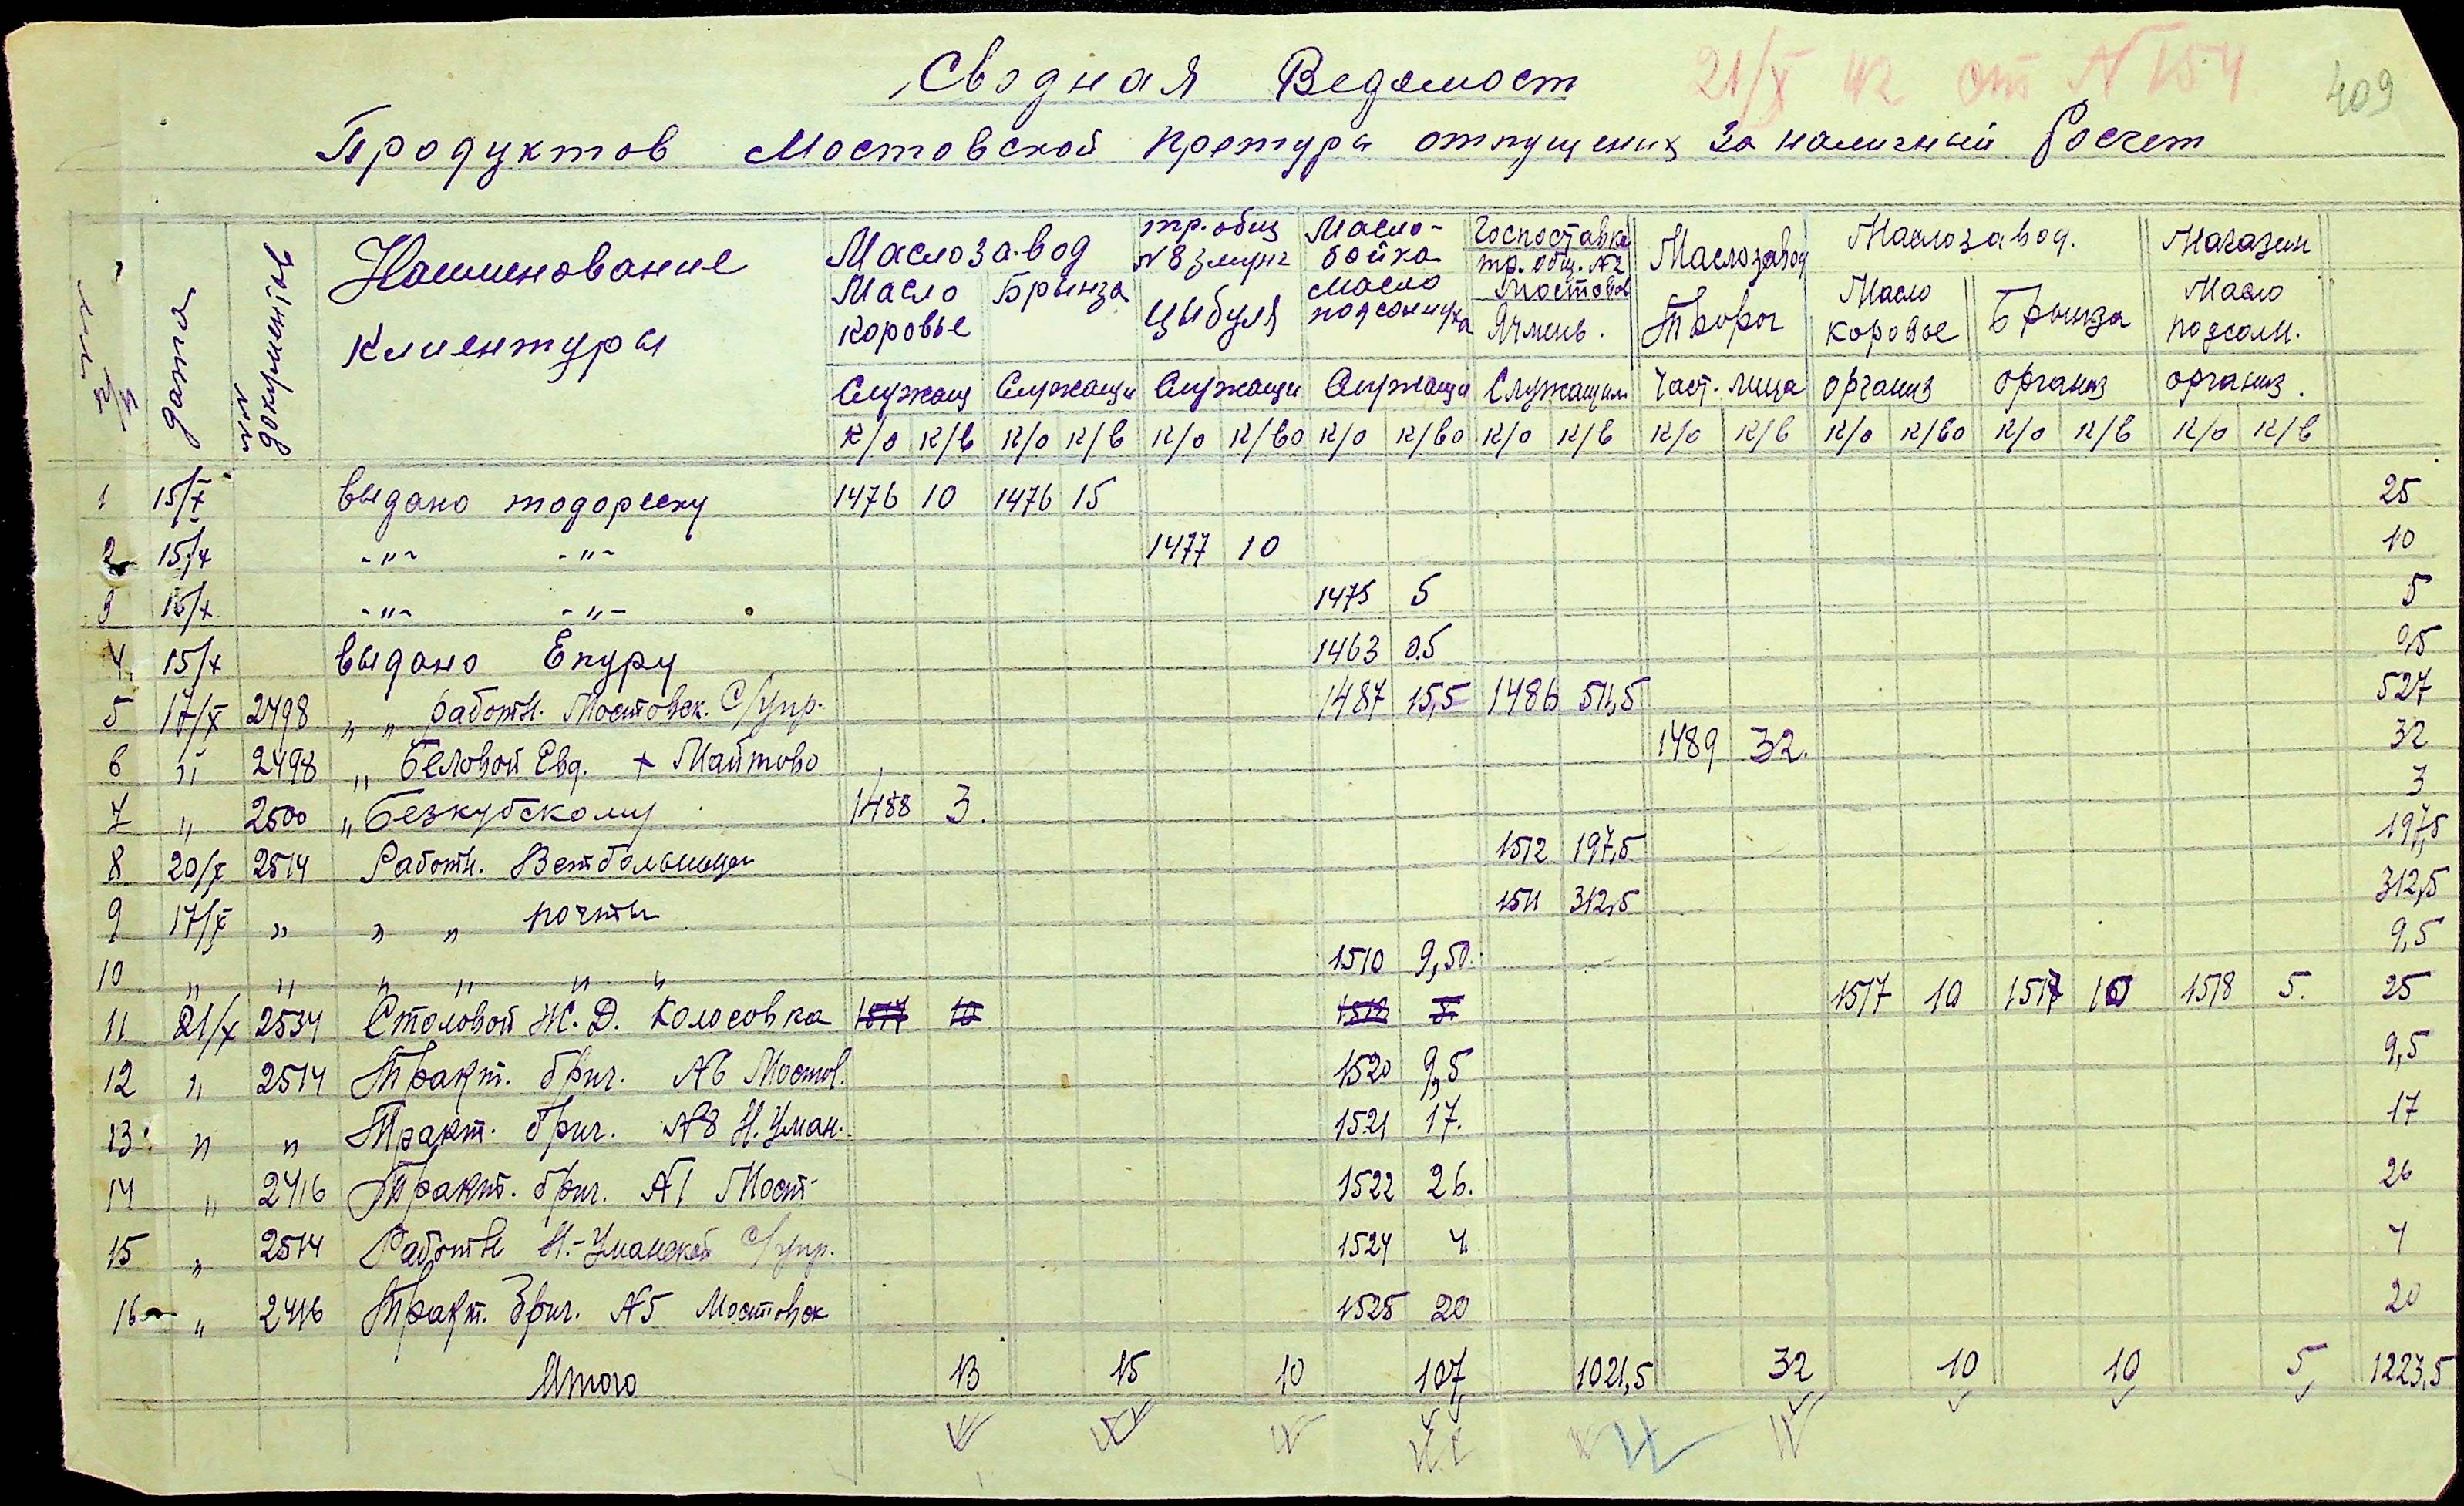 Сводная Ведомост
21/X 42 от N 154
409
Продуктов Мостовской претуры отпущених за наличный Росчет
NN п/п | дата | NN документов | Наименование клиентуры | Маслозавод | тр. общ N8 | Масло-бойка | Госпоставка тр. общ. N2 Мостовое | Маслозавод | Маслозавод. | Магазин
Масло коровье | Брынза | Цибуля | масло подсолнуха | Ячмень. | Творог | Масло коровое | Брынза | Масло подсолн.
Служащ | Служащи | Служащи | Служащи | Служащим | Част. лица | организ | организ | организ.
к/о | к/в | к/о | к/в | к/о | к/во | к/о | к/во | к/о | к/в | к/о | к/в | к/о | к/во | к/о | к/в | к/о | к/в
1 15/X выдано тодореску 1476 10 1476 15 25
2 15/X -"- -"- 1477 10 10
3 15/X -"- -"- 1475 5 5
4 15/X выдано Епуру 1463 0.5 0,5
5 17/X 2498 " " работн. Мостовск. С/упр. 1487 15,5 1486 511,5 527
6 " 2498 " Беловой Евд. + Майтово 1489 32. 32
7 " 2500 " Безкубскому 1488 3. 3
8 20/X 2514 Работн. Ветбольницы 1512 197,5 197,5
9 17/X " " " почты 1511 312,5 312,5
10 " " " " " " 1510 9,50. 9,5
11 21/X 2534 Столовой Ж.Д. Колосовка 1517 10 1518 5. 1517 10 1517 10 1518 5. 25
12 " 2514 Тракт. бриг. N6 Мостов. 1520 9,5 9,5
13 " " Тракт. бриг. N8 Н. Уман. 1521 17. 17
14 " 2416 Тракт. бриг. N1 Мост- 1522 26. 26
15 " 2514 Работн Н.-Уманской С/упр. 1524 4. 4
16 " 2416 Тракт. Бриг. N5 Мостовск 1525 20 20
Итого 13 15 10 107 1021,5 32 10 10 5 1223,5